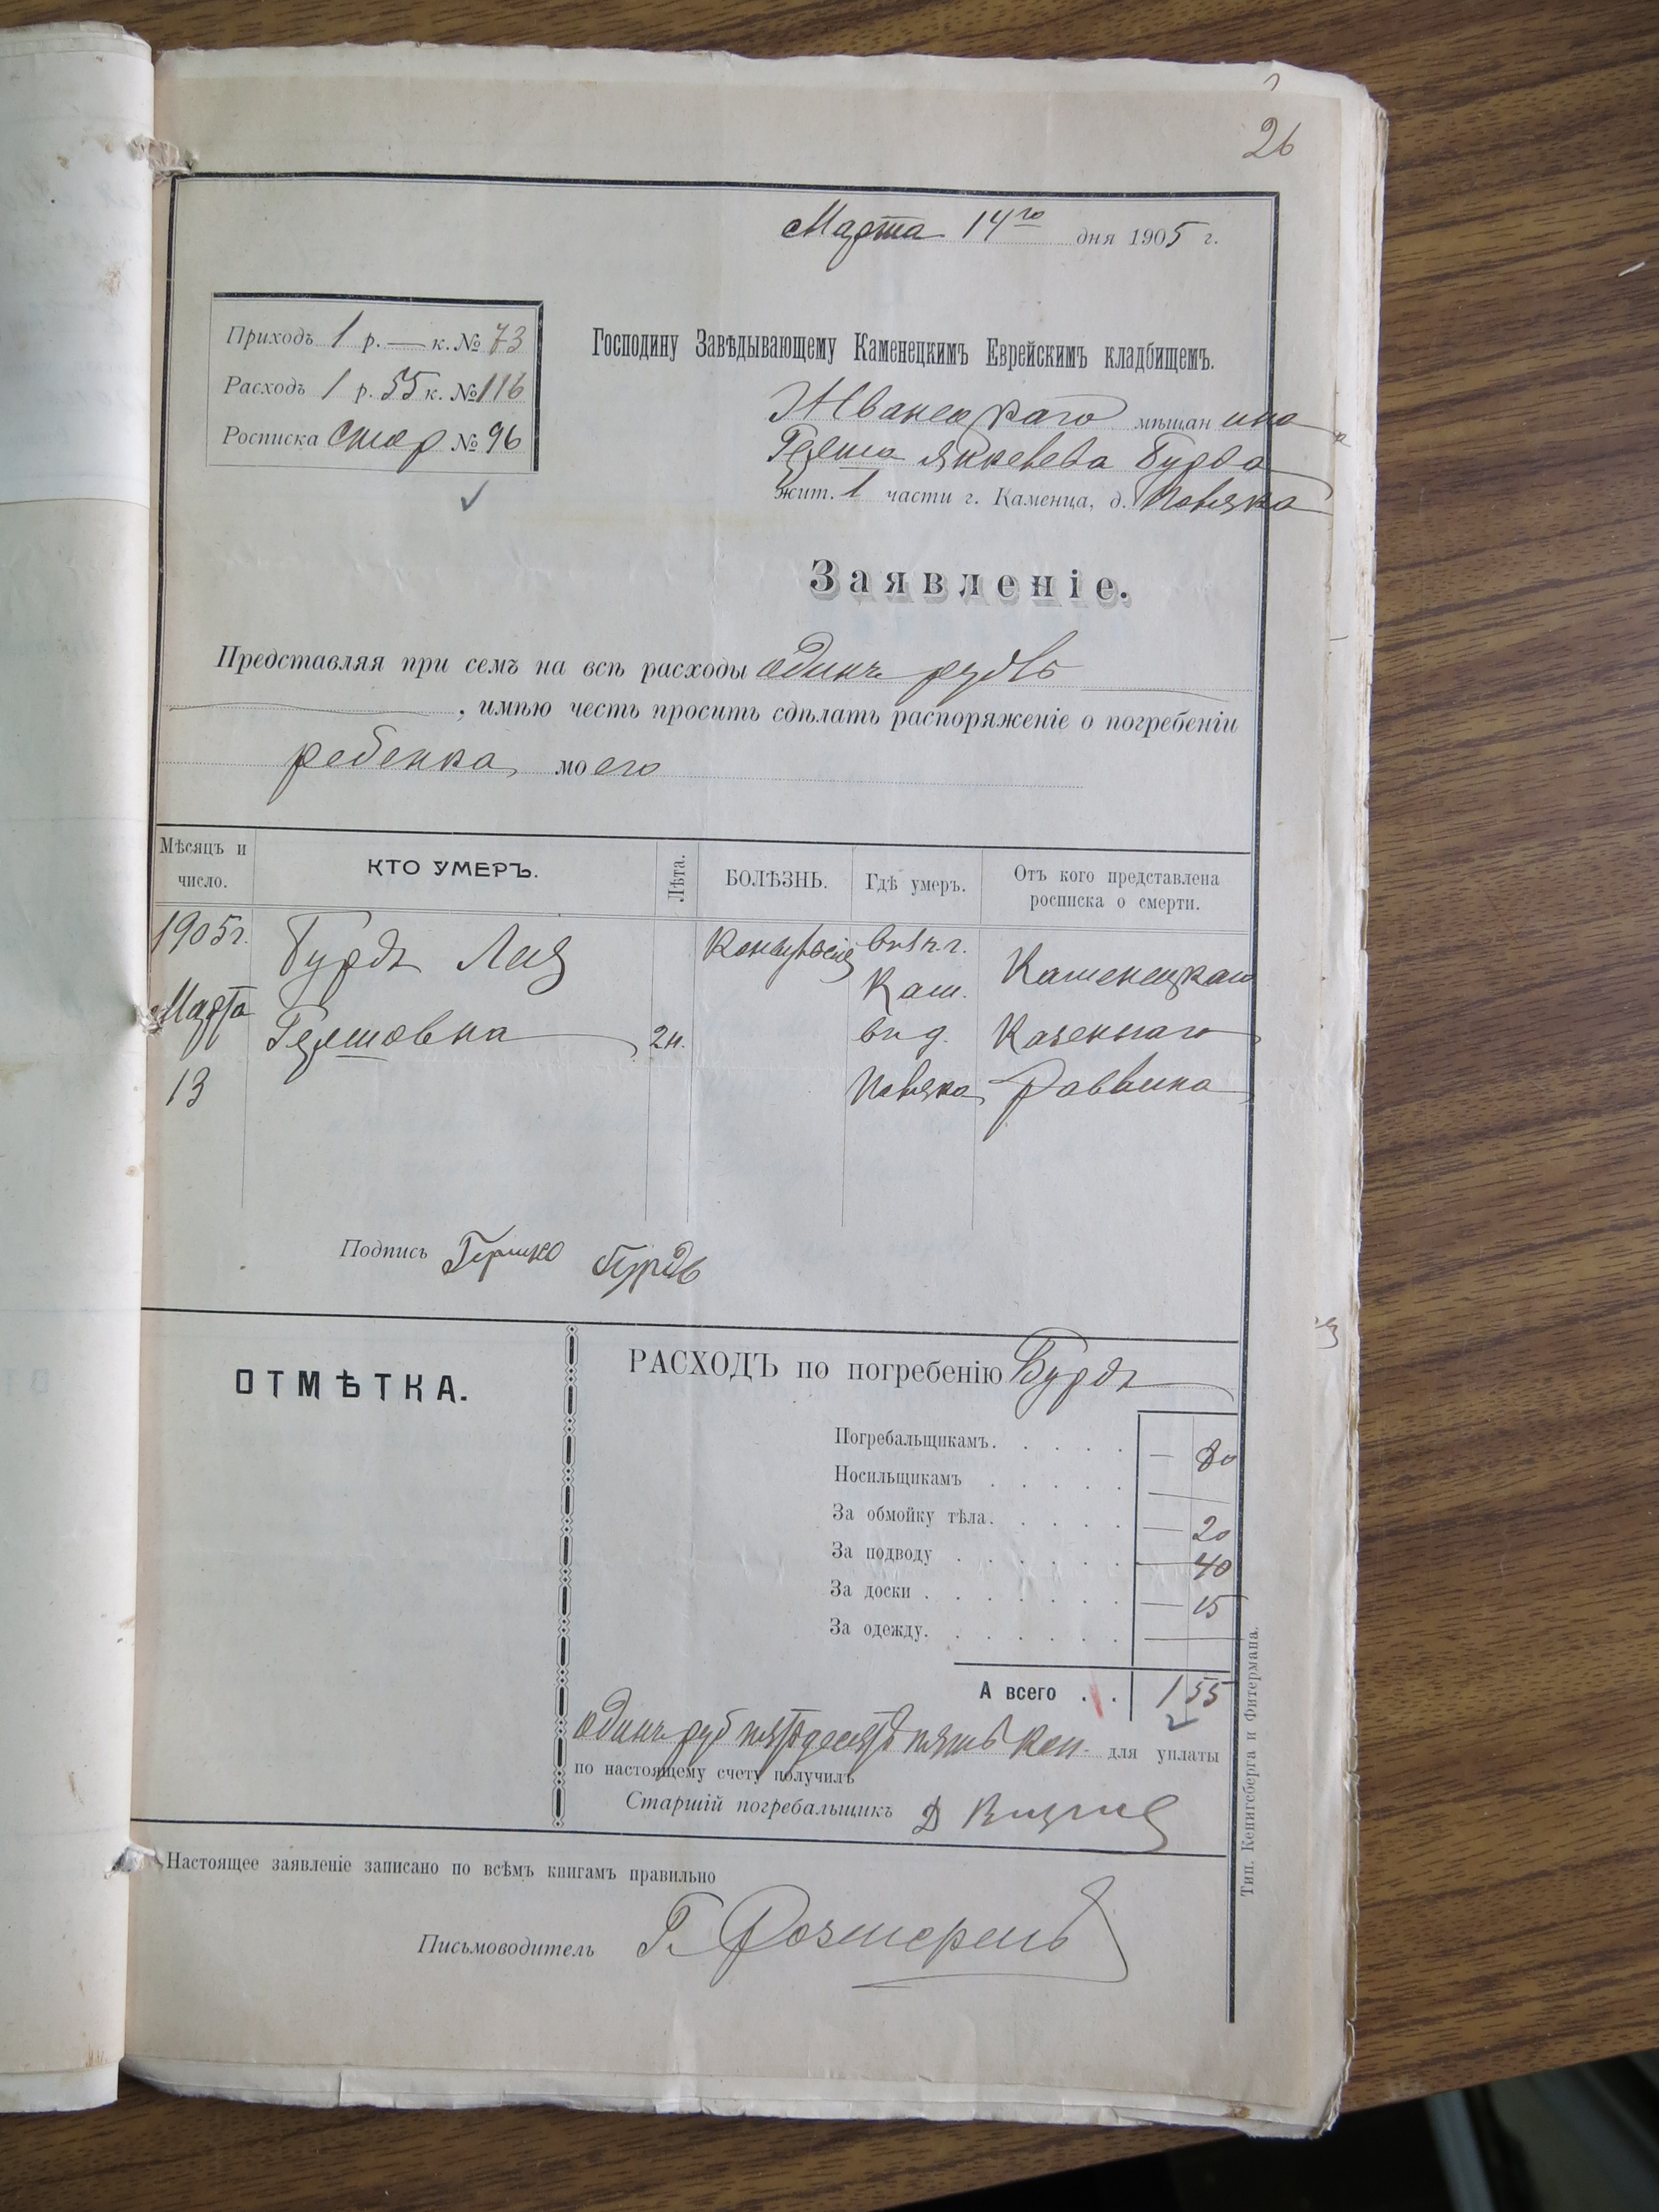 26
Марта 14го дня 1905 г.
Приходъ 1 р. — к. № 73
Расходъ 1 р. 55 к. № 116
Росписка стар № 96
Господину Завѣдывающему Каменецкимъ Еврейскимъ кладбищемъ.
Жванецкаго мѣщанина
Гершa Бурда
жит. 1 части г. Каменца, д.
Заявленіе.
Представляя при семъ на всѣ расходы одинъ рубль
, имѣю честь просить сдѣлать распоряженіе о погребеніи
ребенка моего
Мѣсяцъ и число.
КТО УМЕРЪ.
Лѣта.
БОЛѢЗНЬ.
Гдѣ умеръ.
Отъ кого представлена росписка о смерти.
1905 г. Марта 13
Бурдъ Лея Гершовна
2 н.
въ 1 ч. г. Кам. въ д.
Каменецкаго Казеннаго Раввина
Подпись Гершко Бурдъ
ОТМѢТКА.
РАСХОДЪ по погребенію Бурдъ
Погребальщикамъ. — 80
Носильщикамъ —
За обмойку тѣла. — 20
За подводу — 40
За доски — 15
За одежду. —
А всего 1 55
одинъ руб пятьдесятъ пять коп. для уплаты
по настоящему счету получилъ
Старшій погребальщикъ Д
Настоящее заявленіе записано по всѣмъ книгамъ правильно
Письмоводитель Г.
Тип. Кенигсберга и Фитермана.